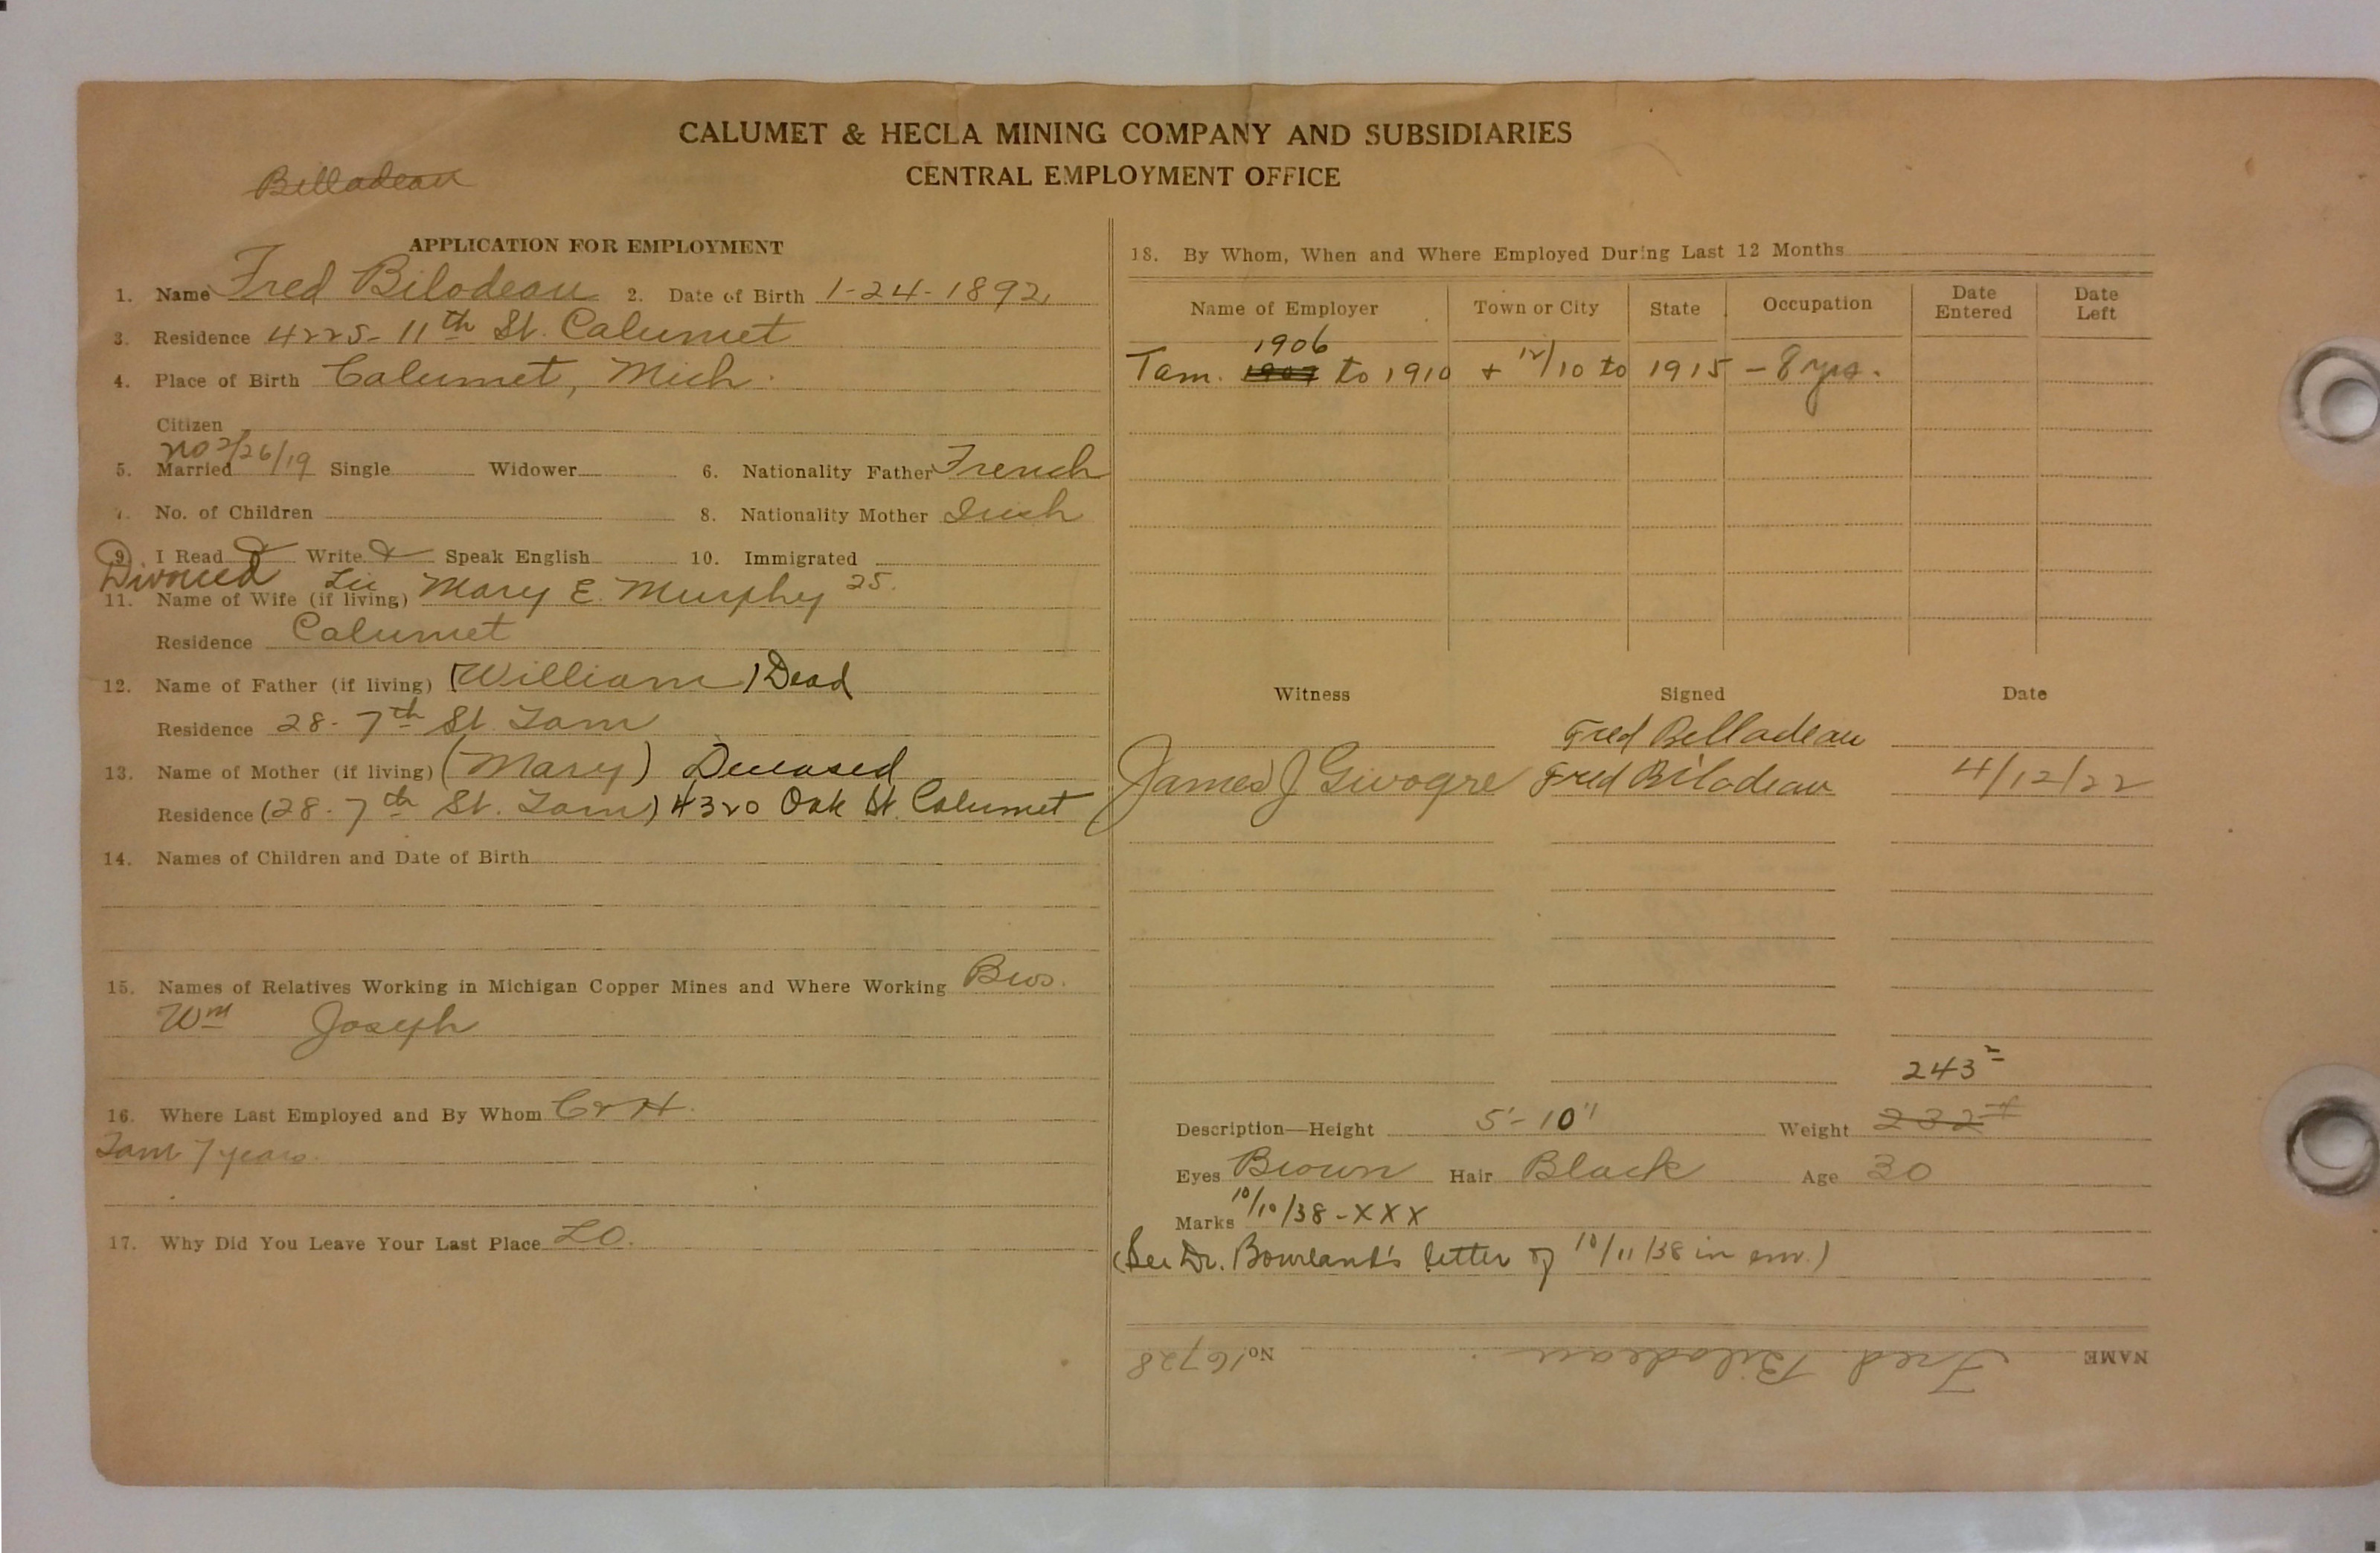 CALUMET & HECLA MINING COMPANY AND SUBSIDIARIES
CENTRAL EMPLOYMENT OFFICE
Billadeau
APPLICATION FOR EMPLOYMENT
1. Name Fred Bilodeau 2. Date of Birth 1-24-1892
3. Residence 4225- 11th St. Calumet
4. Place of Birth Calumet, Mich.
Citizen
5. Married no 2/26/19 Single Widower 6. Nationality Father French
7. No. of Children 8. Nationality Mother Irish
9. I Read Write Speak English 10. Immigrated
Divorced
11. Name of Wife (if living) Mary E. Murphy 25.
Residence Calumet
12. Name of Father (if living) (William) Dead
Residence 28- 7th St. Tam
13. Name of Mother (if living) (Mary) Deceased
Residence (28- 7th St. Tam) 4320 Oak St. Calumet
14. Names of Children and Date of Birth
15. Names of Relatives Working in Michigan Copper Mines and Where Working Bros.
Wm Joseph
16. Where Last Employed and By Whom C & H.
Tam 7 years.
17. Why Did You Leave Your Last Place LO.
18. By Whom, When and Where Employed During Last 12 Months
Name of Employer Town or City State Occupation Date Entered Date Left
1906
Tam. 1907 to 1910 + 12/10 to 1915 - 8 yrs.
Witness Signed Date
Fred Belladeau
James J Givogre Fred Bilodeau 4/12/22
243
Description—Height 5'-10" Weight 232#
Eyes Brown Hair Black Age 30
Marks 10/10/38 - XXX
(See Dr. Bourland's letter of 10/11/38 in env.)
NAME Fred Bilodeau No 16728